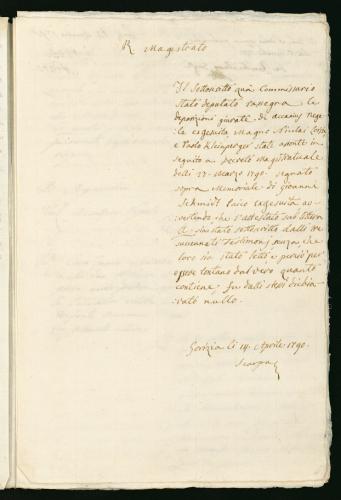 R. Magistrato
Il Sottoscritto quà Commissario
stato deputato rassegna le
deposizioni giurate di
le cagesuita, Magno Niclas
e Paolo Kleinperger state assonte in
seguito a Decreto Magistratuale
delli 27. Marzo 1790. segnato
sopra Memoriale di Giovanni
Schmidt laico cagesuita av-
vertendo, che l'attestato sub littera
A. sia stato sottoscritto dalli
testimonj senza, che
loro sia stato letto e perciò per
essere lontano dal vero quanto
contiene fu dalli stessi dichia-
rato nullo.
Gorizia li 14. Aprile 1790.